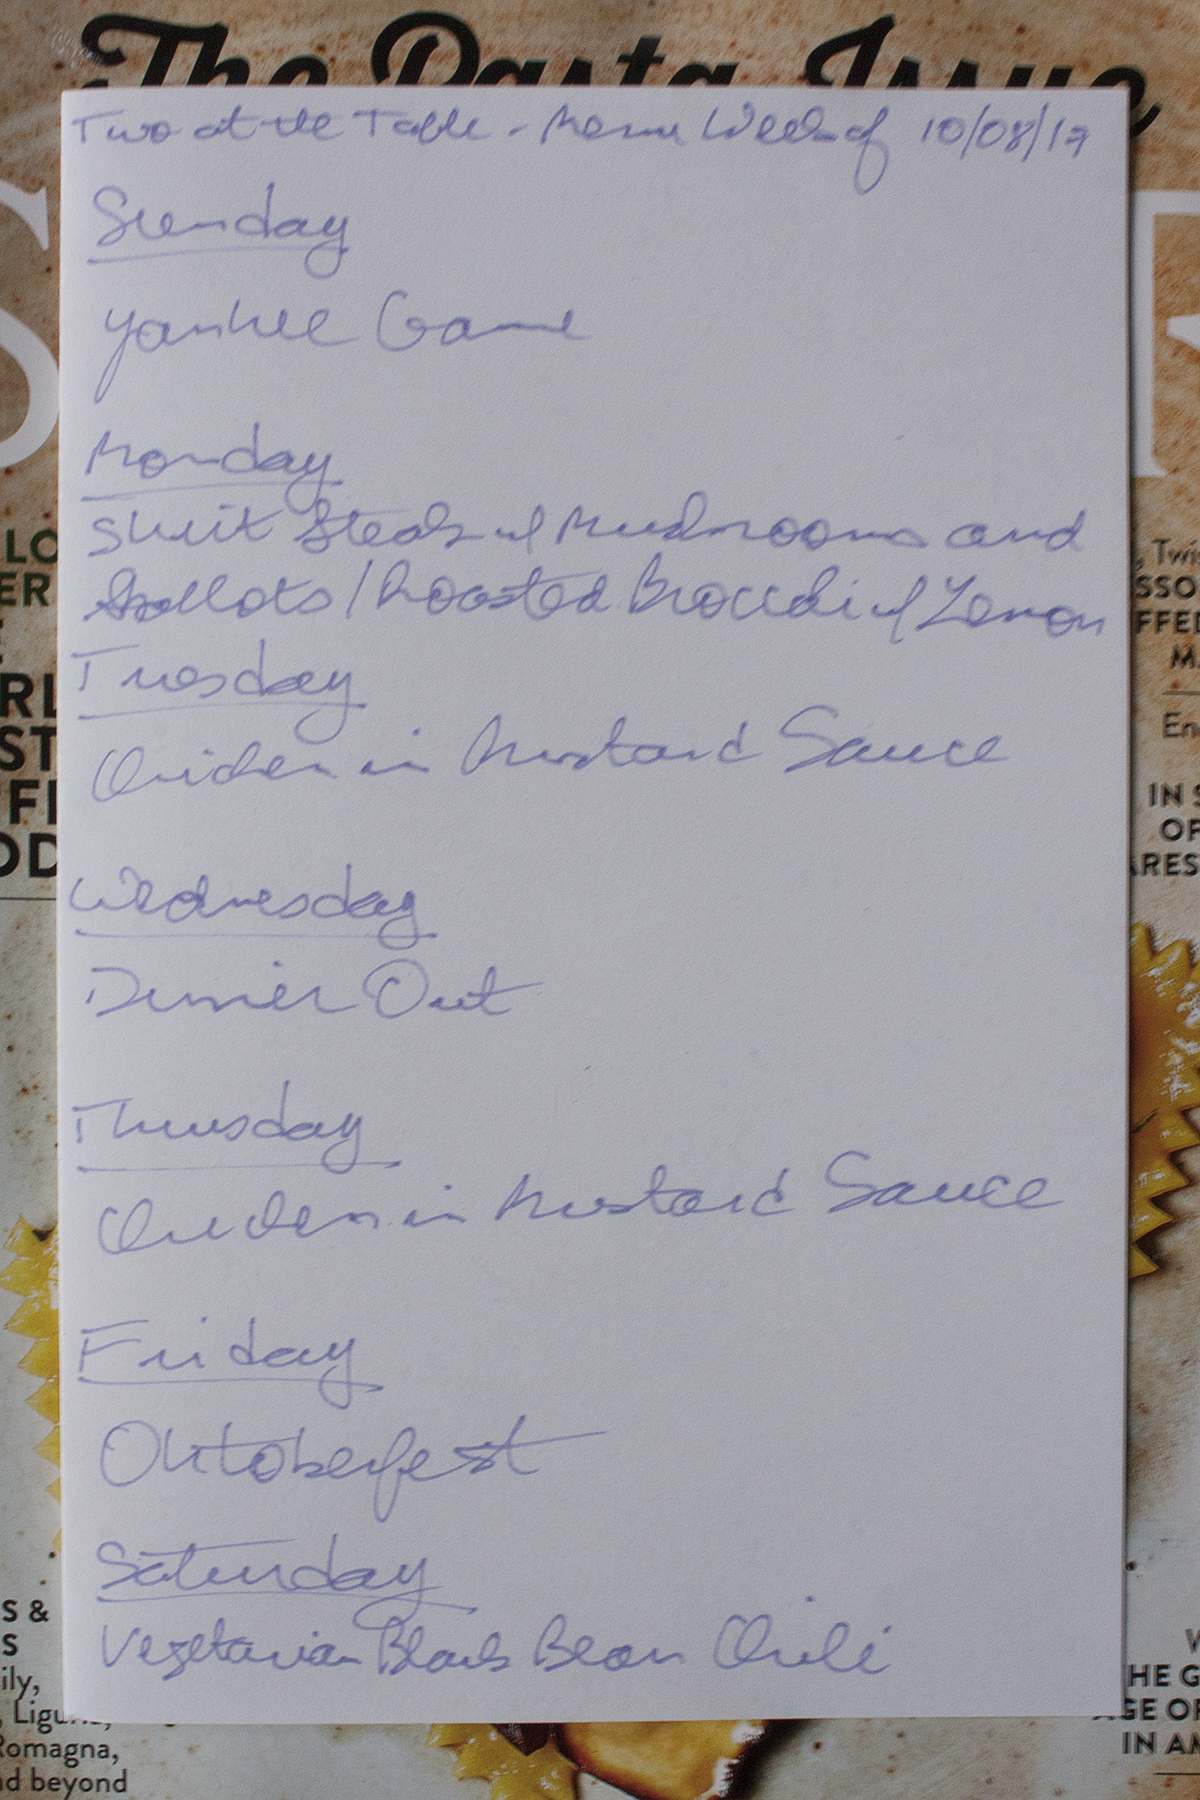 The Pasta Issue
Two at the Table - Menu Week of 10/08/17
Sunday
Yankee Game
Monday
Skirt Steak w/ Mushrooms and
Shallots / Roasted Broccoli w/ Lemon
Tuesday
Chicken in Mustard Sauce
Wednesday
Dinner Out
Thursday
Chicken in Mustard Sauce
Friday
Oktoberfest
Saturday
Vegetarian Black Bean Chili
IN
OF
S &
S
ily,
Romagna,
nd beyond
THE
IN